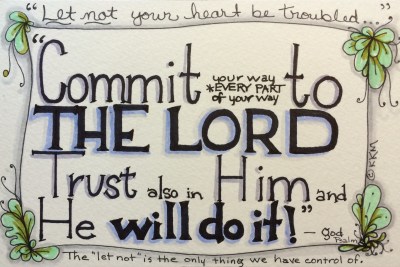 "Let not your heart be troubled...,"
"Commit your way to
*EVERY PART
of your way
THE LORD
Trust also in Him and
He will do it!" – God
Psalm
©KKM
The "let not" is the only thing we have control of.